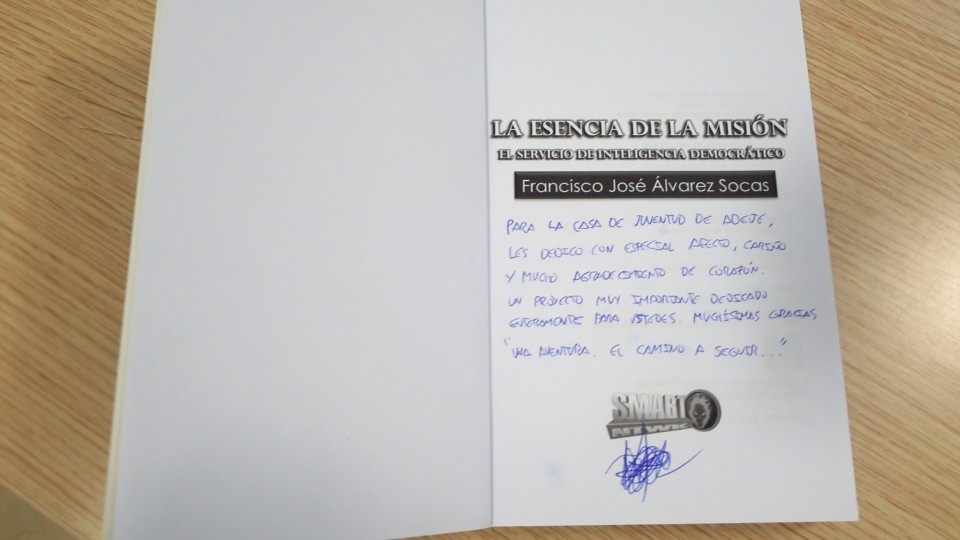 LA ESENCIA DE LA MISIÓN
EL SERVICIO DE INTELIGENCIA DEMOCRÁTICO
Francisco José Álvarez Socas
PARA LA CASA DE JUVENTUD DE ADEJE,
LES DEDICO CON ESPECIAL AFECTO, CARIÑO
Y MUCHO AGRADECIMIENTO DE CORAZÓN.
UN PROYECTO MUY IMPORTANTE DEDICADO
ENTERAMENTE PARA USTEDES. MUCHÍSIMAS GRACIAS
"UNA AVENTURA. EL CAMINO A SEGUIR..."
SMART
NTWK